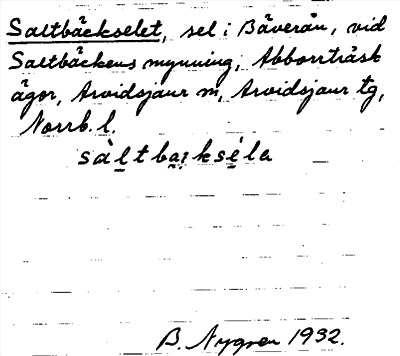 Saltbäckselet, sel i Bäverån, vid
Saltbäckens mynning, Abborrträsk
ägor, Arvidsjaur sn, Arvidsjaur tg,
Norrb. l.
sàltba̱i̯kséla
B. Nygren 1932.